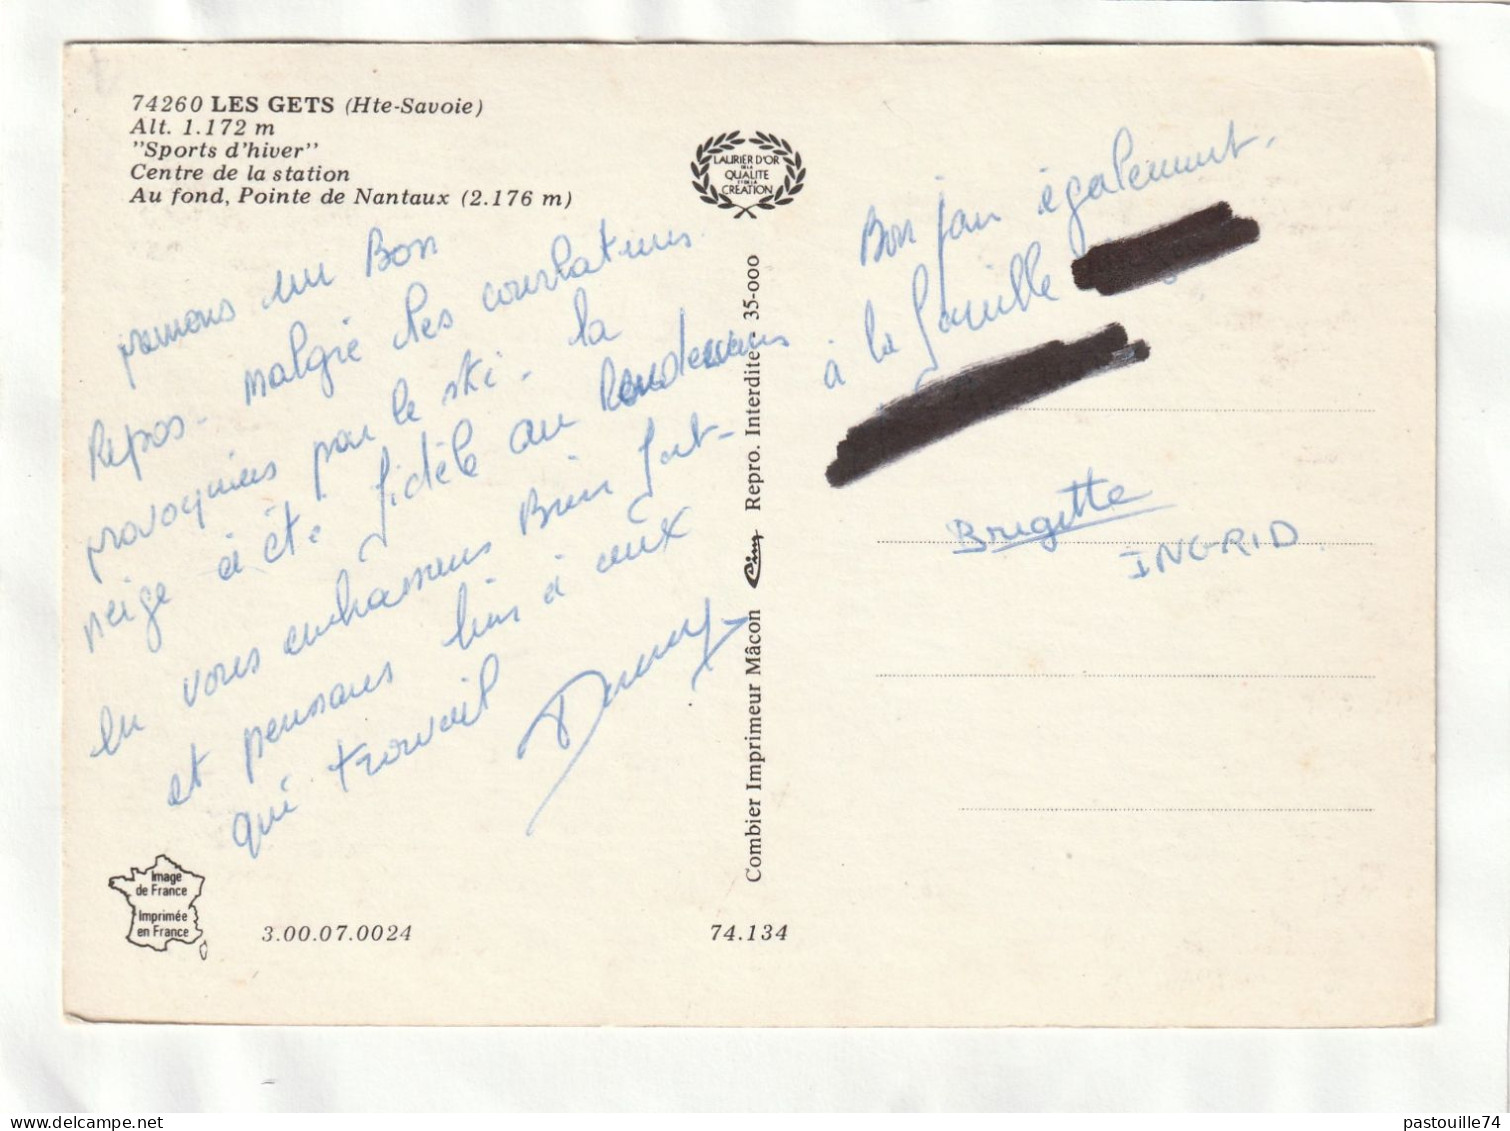 74260 LES GETS (Hte-Savoie)
Alt. 1.172 m
"Sports d'hiver"
Centre de la station
Au fond, Pointe de Nantaux (2.176 m)
prenons un Bon
Repos - malgré les courbatures
provoquées par le ski - la
neige à été fidèle au Rendezvous
en vous embrassons Bien fort -
et pensons bien à ceux
qui travail
LAURIER D'OR
DE LA
QUALITE
ET DE LA
CREATION
Combier Imprimeur Mâcon Cim Repro. Interdite - 35-000
Bon jour également -
à la famille
Brigitte
INGRID.
Image
de France
Imprimée
en France
3.00.07.0024
74.134
pastouille74